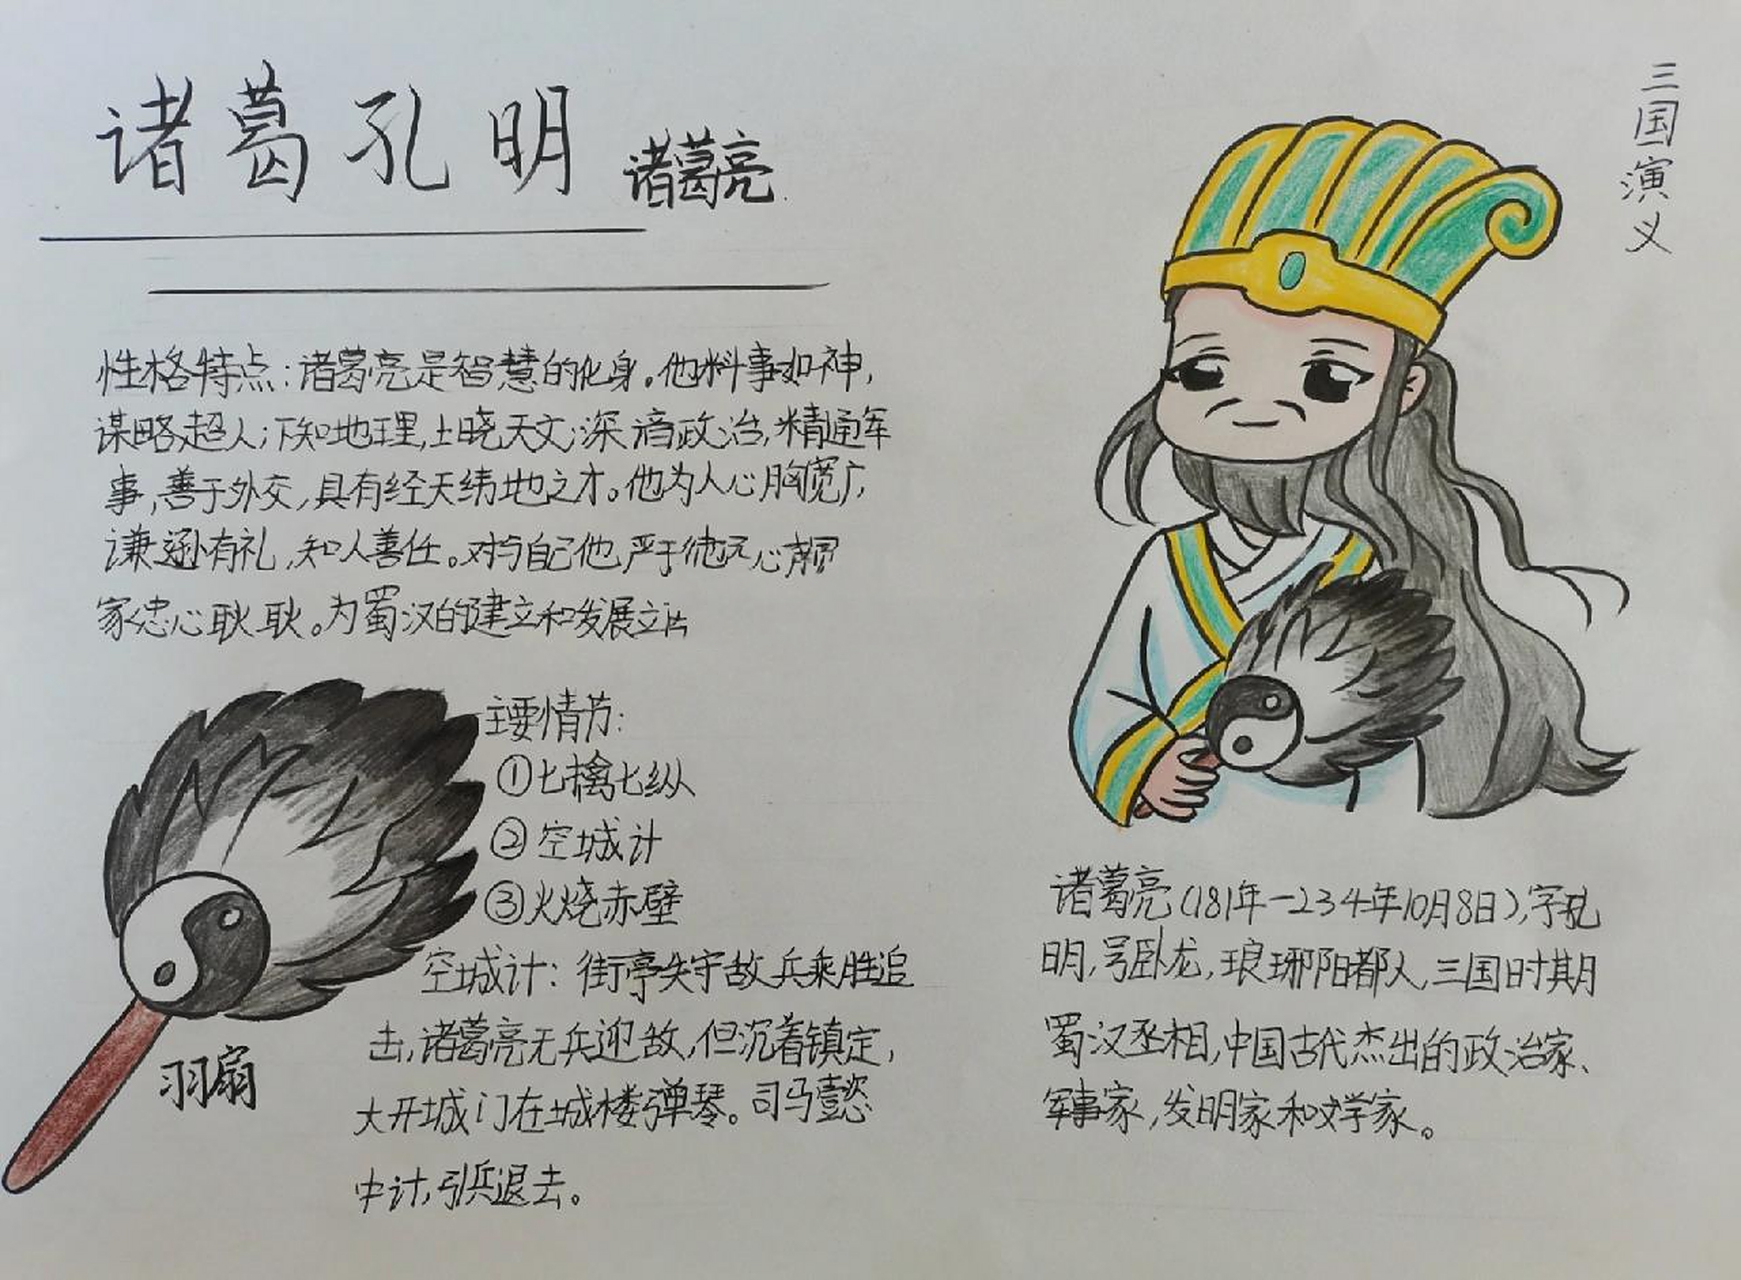 诸葛孔明 诸葛亮
三国演义
性格特点:诸葛亮是智慧的化身。他料事如神,
谋略超人;下知地理,上晓天文;深谙政治,精通军
事,善于外交,具有经天纬地之才。他为人心胸宽广,
谦逊有礼,知人善任。对于自己他严于
家忠心耿耿。为蜀汉的建立和发展立
主要情节:
①七擒七纵
②空城计
③火烧赤壁
空城计:街亭失守敌兵乘胜追
击,诸葛亮无兵迎敌,但沉着镇定,
大开城门在城楼弹琴。司马懿
中计,引兵退去。
羽扇
诸葛亮(181年-234年10月8日),字孔
明,号卧龙,琅琊阳都人,三国时期
蜀汉丞相,中国古代杰出的政治家、
军事家,发明家和文学家。